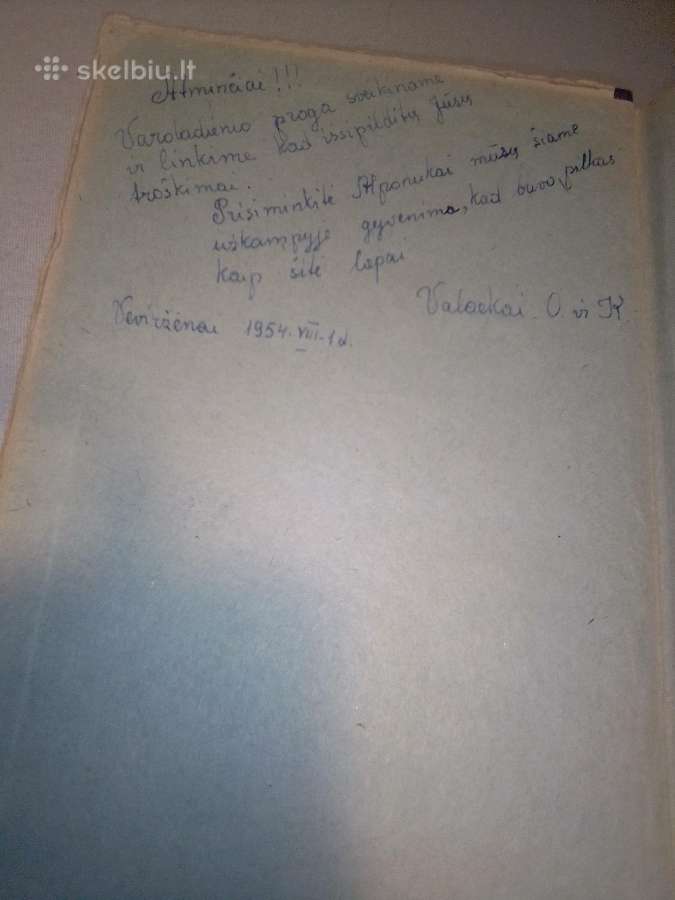 skelbiu.lt
Atminčiai!!!
Vardadienio proga sveikiname
ir linkime kad issipilditų Jūsų
troškimai.
Prisiminkite Alponukai mūsų šiame
užkampyje gyvenima, kad buvo pilkas
kaip šitē lapai
Valockai O. ir
Veviržėnai 1954.VIII-1d.